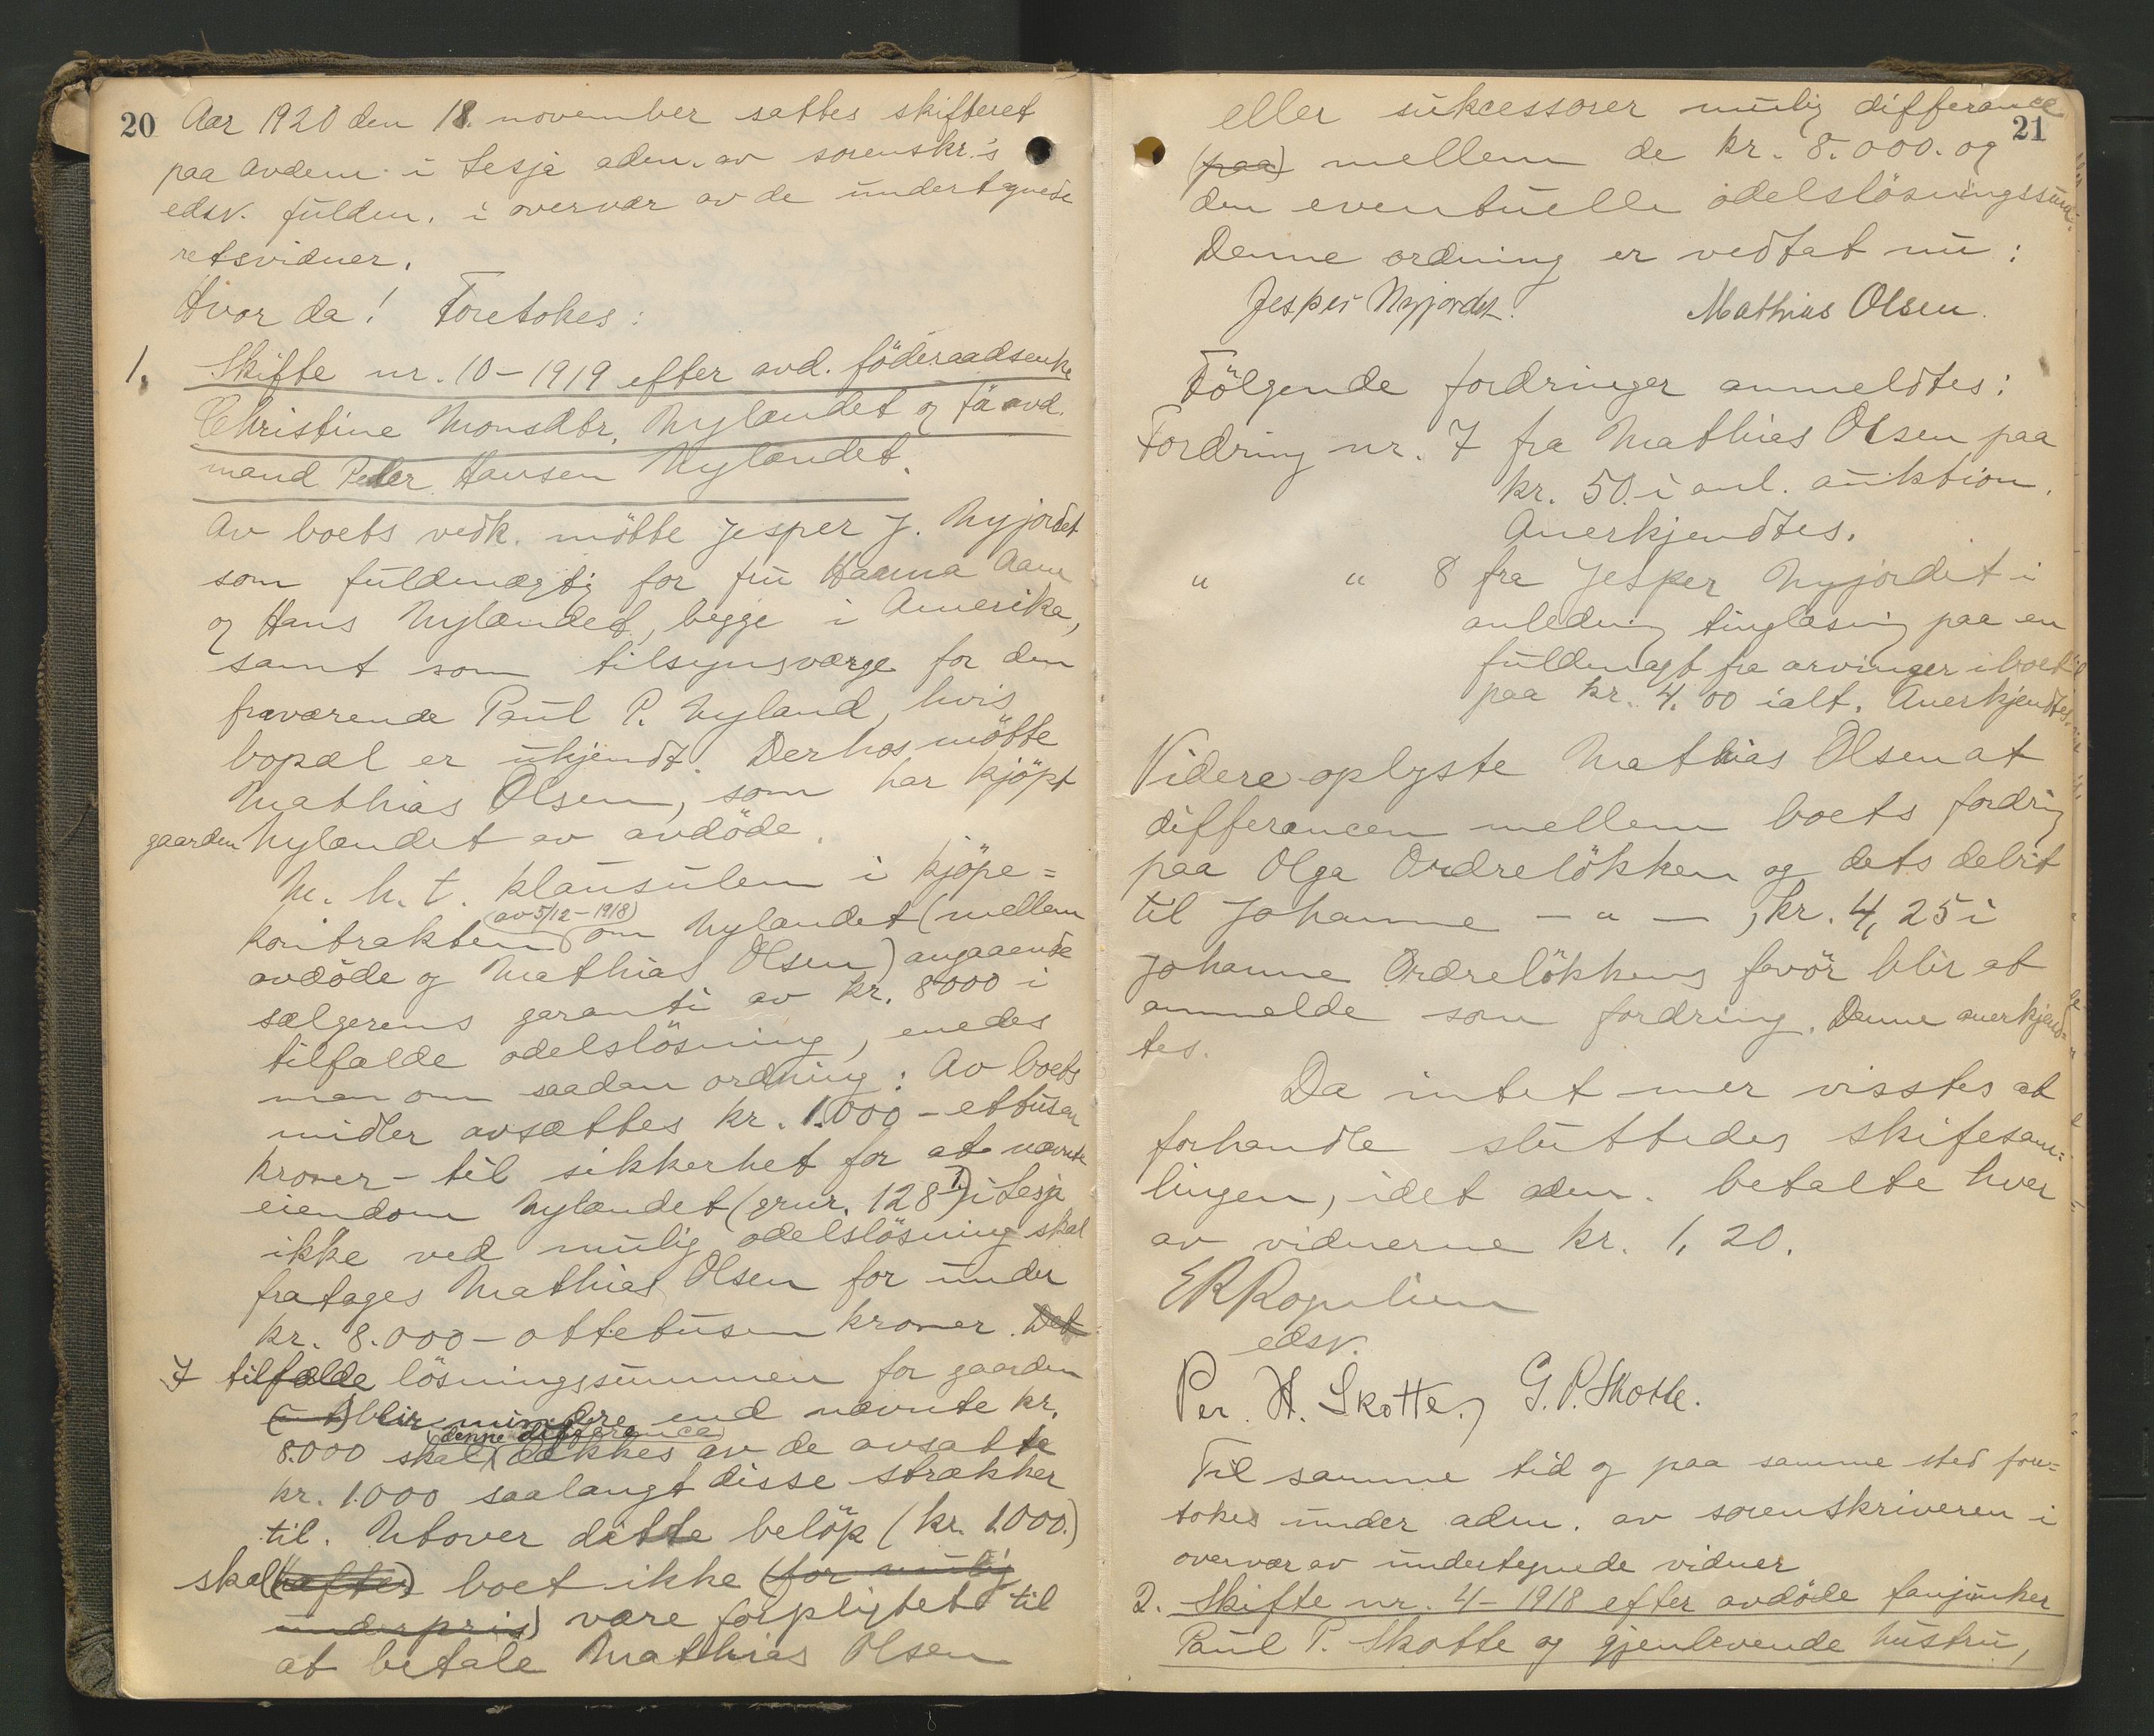 20
Aar 1920 den 18. november sattes skifteret
paa Avdem i Lesja adm. av sorenskr.'s
edsv. fuldm. i overvær av de undertegnede
retsvidner.
Hvor da! Foretokes:
1. Skifte nr. 10-1919 efter avd. föderaadsenke
Christine Monsdtr. Nylændet og før avd.
mand Peder Hansen Nylændet.
Av boets vedk. mötte Jesper J. Nyjordet
som fuldmægtig for fru Hanna Aam
og Hans Nylændet, begge i Amerika,
samt som tilsynsværge for den
fraværende Paul P. Nyland, hvis
bopæl er ukjendt. Derhos mötte
Mathias Olsen, som har kjöpt
gaarden Nylændet av avdöde.
M. h. t. klausulen i kjöpe=
kontrakten (av 5/12-1918) om Nylændet (mellem
avdöde og Mathias Olsen) angaaende
sælgerens garanti av kr. 8000 i
tilfælde odelslösning, enedes
man om saadan ordning: Av boets
midler avsættes kr. 1.000 - ettusen
kroner - til sikkerhet for at nævnte
eiendom Nylændet (grnr. 128 1.) i Lesja
ikke ved mulig odelslösning skal
fratages Mathias Olsen for under
kr. 8.000 - ottetusen kroner. Det
I tilfælde lösningssummen for gaarden
blir mindre end nævnte kr.
8.000 skal (denne differance) dækkes av de avsatte
kr. 1.000 saalangt disse strækker
til. Utover dette belöp (kr. 1.000.)
skal (hæfter) boet ikke (for mulig
underpris) være forpligtet til
at betale Mathias Olsen
21
eller sukcessorer mulig differance
(paa) mellem de kr. 8.000. og
den eventuelle odelslösningssum.
Denne ordning er vedtat nu:
Jesper Nyjordet. Mathias Olsen.
Fölgende fordringer anmeldtes:
Fordring nr. 7 fra Mathias Olsen paa
kr. 50. i anl. auktion.
Anerkjendtes.
" " 8 fra Jesper Nyjordet i
anledning tinglæsing paa en
fuldmagt fra arvinger i boet
paa kr. 4.00 ialt. Anerkjendtes.
Videre oplyste Mathias Olsen at
differancen mellem boets fordring
paa Olga Ordrelökken og dets debit
til Johanne — " —, kr. 4,25 i
Johanne Ordrelökkens favör blir at
anmelde som fordring. Denne anerkjend=
tes.
Da intet mer visstes at
forhandle sluttedes skiftesam=
lingen, idet adm. betalte hver
av vidnerne kr. 1,20.
edsv.
Per. H. Skotte, G. P. Skotte.
Til samme tid og paa samme sted fore=
tokes under adm. av sorenskriveren i
overvær av undertegnede vidner
2. Skifte nr. 4-1918 efter avdöde fanjunker
Paul P. Skotte og gjenlevende hustru,